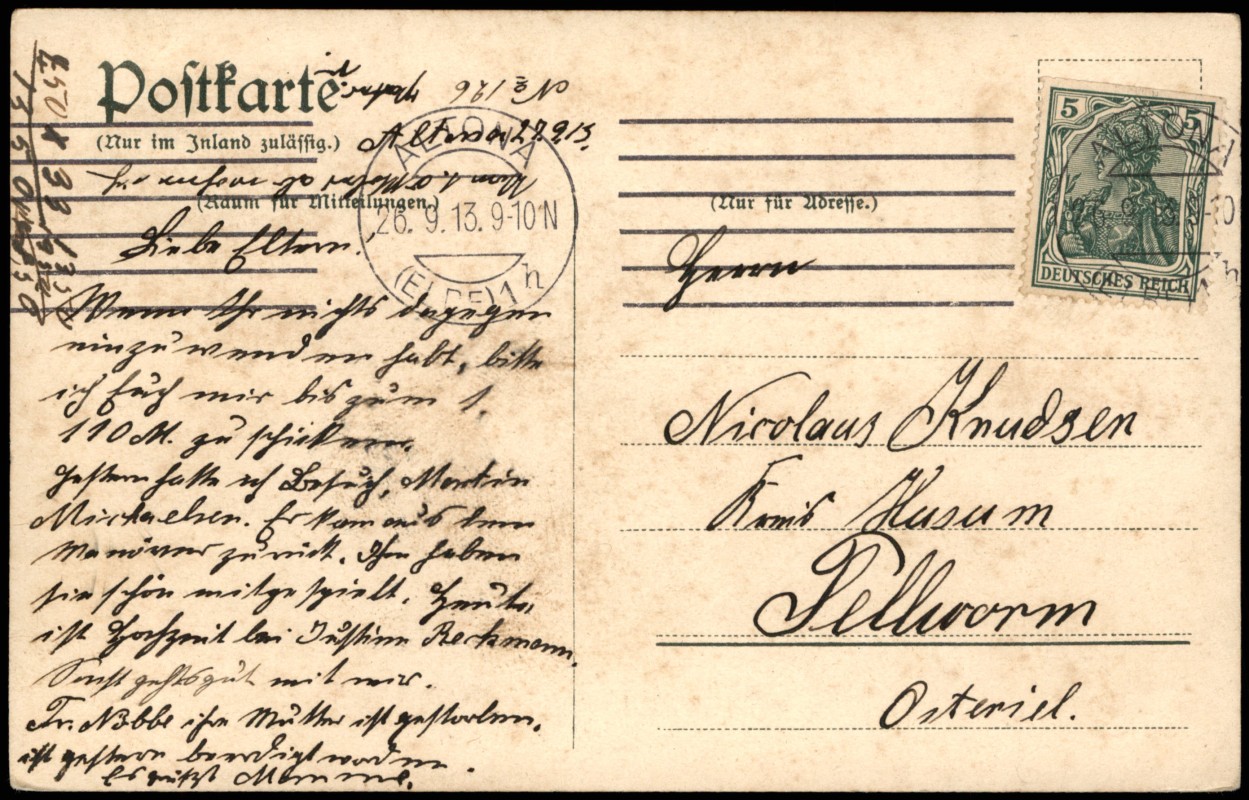 Postkarte
(Nur im Inland zulässig.)
Altona 27.9.13.
(Raum für Mitteilungen.)
(Nur für Adresse.)
ALTONA
26.9.13.9-10N
(ELBE) 1 h
5 5
DEUTSCHES REICH
Liebe Eltern!
Wenn Ihr nichts dagegen
einzuwenden habt, bitte
ich Euch mir bis zum 1.
110 M. zu schicken.
Gestern hatte ich Besuch, Martin
Michaelsen. Er kam aus dem
Manöver zurück. Ihm haben
sie schön mitgespielt. Heute
ist Hochzeit bei Justine Beckmann.
Sonst gehts gut mit mir.
Fr. Nöbbe ihre Mutter ist gestorben,
ist gestern beerdigt worden.
Es grüßt Momme.
Herrn
Nicolaus Knudsen
Kreis Husum
Pellworm
Osteriel.